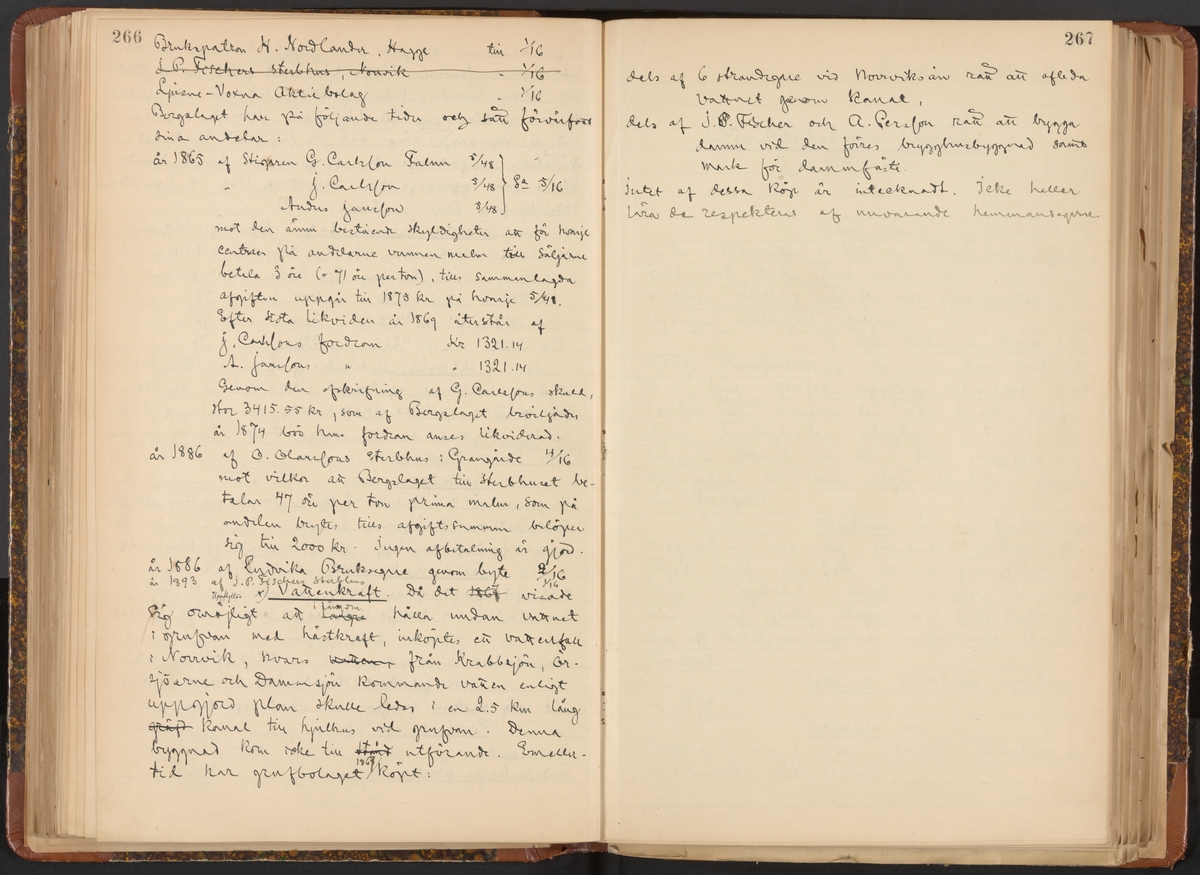 266
Brukspatron H. Nordlander, Hagge till 1/16
J. P. Fischers Sterbhus, Norvik " 1/16
Ljusne-Voxna Aktiebolag " 1/16
Bergslaget har på följande tider och sätt förvärfvat
sina andelar:
år 1865 af Stigaren G. Carlsson Falun 5/48 "
" J. Carlsson 5/48 } Sa 5/16
Anders Jansson 5/48
mot den ännu bestående skyldigheten att för hvarje
centner på andelarne vunnen malm till Säljarne
betala 3 öre (= 71 öre per ton), tills sammanlagda
afgiften uppgår till 1875 kr på hvarje 5/48.
Efter sista likviden år 1869 återstår af
J. Carlssons fordran kr 1321.14
A. Janssons " " 1321.14
Genom den afskrifning af G. Carlssons skuld,
stor 3415.55 kr, som af Bergslaget beviljades
år 1874 bör hans fordran anses likviderad.
år 1886 af O. Olarssons Sterbhus i Grangärde 4/16
mot vilkor att Bergslaget till Sterbhuset be-
talar 47 öre per ton prima malm, som på
andelen brytes tills afgiftssumman belöper
sig till 2000 kr. Ingen afbetalning är gjord.
år 1886 af Ludvika Bruksegare genom byte 2/16
år 1893 af J. P. Fischers Sterbhus 1/16
x) Vattenkraft. Då det 1867 visade
sig omöjligt att längre i längden hålla undan vattnet
i grufvan med hästkraft, inköptes ett vattenfall
i Norrvik, hvars vatten från Krabbsjön, Ör-
sjöarne och Dammsjön kommande vatten enligt
uppgjord plan skulle ledas i en 2.5 km lång
gräfd kanal till hjulhus vid grufvan. Denna
byggnad kom icke till stånd utförande. Emeller-
tid har grufbolaget 1867 köpt:
267
dels af 6 strandegare vid Norrviksån rätt att afleda
vattnet genom kanal,
dels af J. P. Fischer och A. Persson rätt att bygga
damm vid den förres brygghusbyggnad samt
mark för dammfäste.
Intet af dessa köp är intecknadt. Icke heller
lära de respekteras af nuvarande hemmansegare